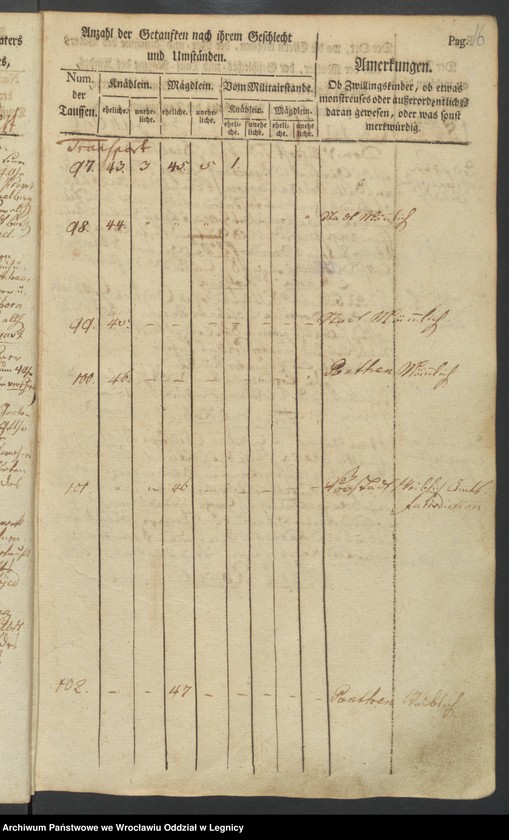 Anzahl der Getauften nach ihrem Geschlecht
und Umständen.
Pag. 16
Anmerkungen.
Num.
der
Tauffen.
Knäblein. Mägdlein. Vom Militairstande.
eheliche. unehe-liche. eheliche. unehe-liche.
Knäblein. Mägdlein.
eheli-che. unehe liche. eheli-che. unehe liche.
Ob Zwillingskinder, ob etwas
monstreuses oder außerordentliches
daran gewesen, oder was sonst
merkwürdig.
Transport
97. 43. 3 45. 5 1.
98. 44 Stadt Männlich
99. 45. – – – – – – – Stadt Männlich
100. 46. – – – Panthen Männlich
101 " " 46 – – – – – Vorstadt Weiblich Amts
Jurisdiction
102. – – 47 – – – – – Panthen Weiblich
ters
s,
Archiwum Państwowe we Wrocławiu Oddział w Legnicy